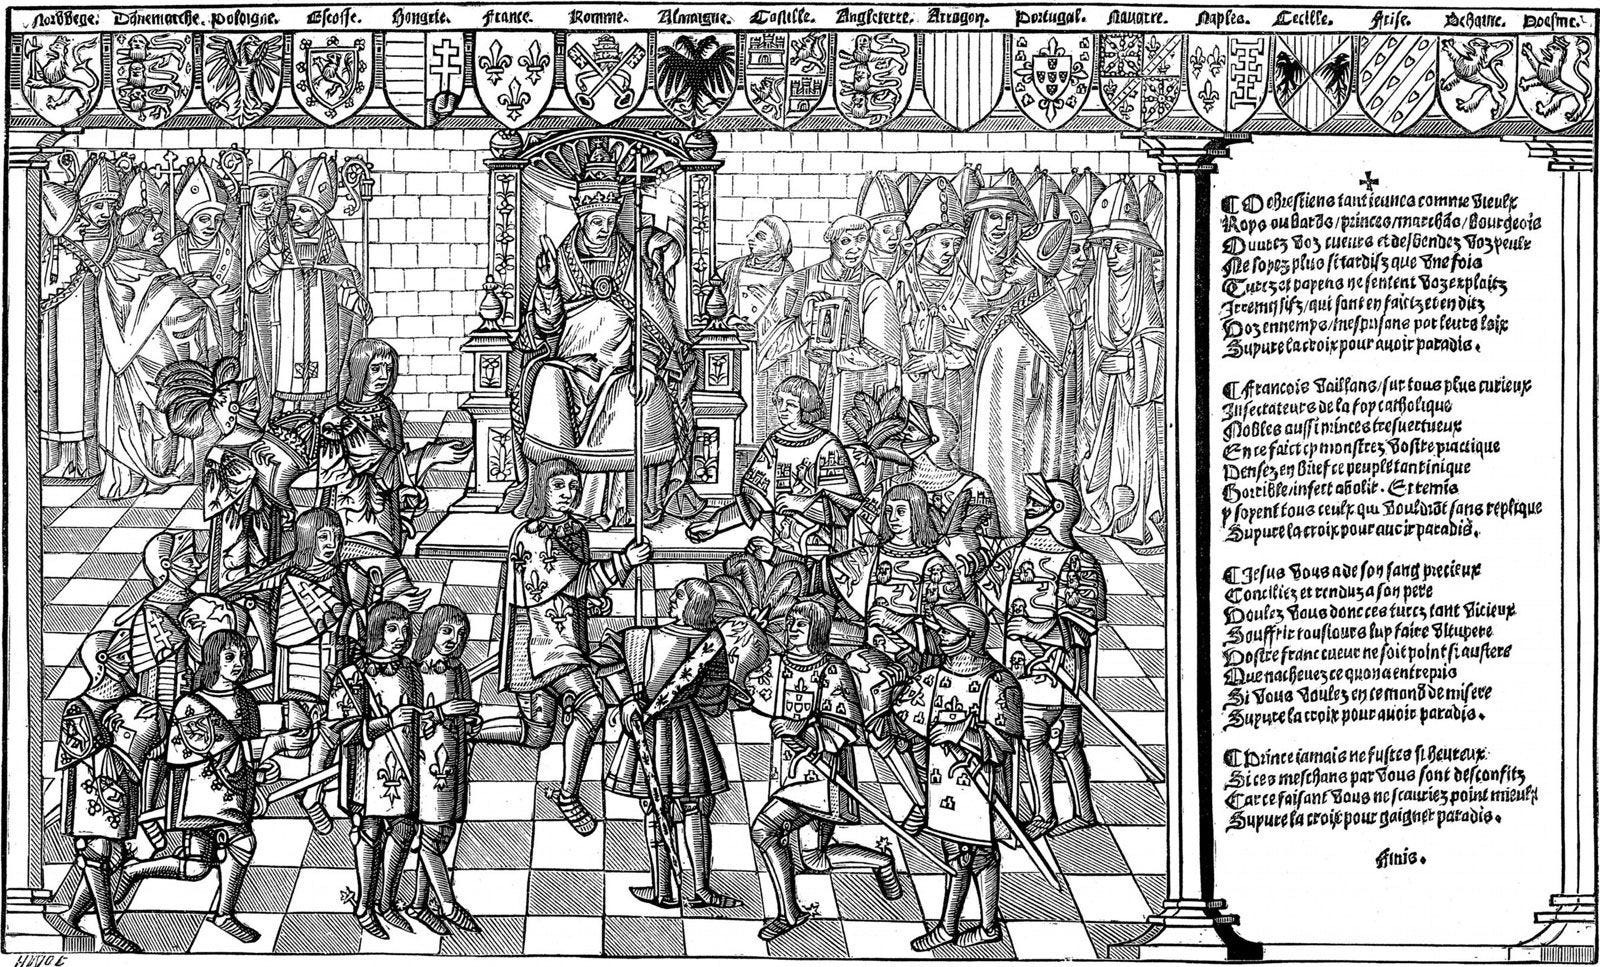 Norvege. Dānemarche. Poloigne. Escosse. Hongrie. France. Romme. Almaigne. Castille. Angleterre. Arragon. Portugal. Navarre. Naples. Cecille. Frise. Behaine. Boesme.
O chrestiens tant jeunes comme vieulx
Roys ou barōs/princes/marchās/bourgeois
Ouvrez voz cueurs et desbendez voz yeulx
Ne soyez plus si tardifz que une fois
Turcz et payens ne sentent voz exploitz
Irremissifz/qui sont en faictz et en ditz
Voz ennemys/mesprisans par leurs loix
Suyvre la croix pour avoir paradis.
Francois vaillans/sur tous plus curieux
Insectateurs de la foy catholique
Nobles aussi princes tresvertueux
En ce faict cy monstrez vostre practique
Pensez en brief ce peuple tant inique
Horrible/infect abolir. Et
y soyent tous ceulx qui vouldrōt sans replicque
Suyvre la croix pour avoir paradis.
Jesus vous a de son sang precieux
Conciliez et renduz a son pere
Voulez vous donc ces turcz tant vicieux
Souffrir tousiours luy faire vitupere
Vostre franc cueur ne soit point si austere
Que nachevez ce quon a entrepris
Si vous voulez en ce mond de misere
Suyvre la croix pour avoir paradis.
Prince iamais ne fustes si heureux
Si ces meschans par vous sont desconfitz
Car ce faisant vous ne scauriez point mieulx
Suyvre la croix pour gaigner paradis.
Finis.